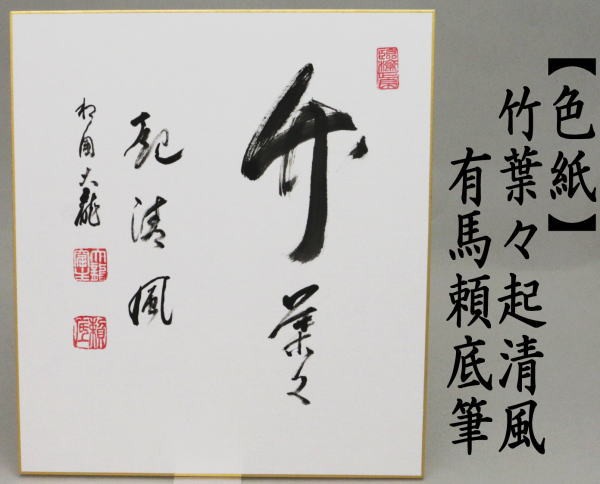 【色紙】
竹葉々起清風
有馬頼底筆
竹葉々
起清風
相国大龍